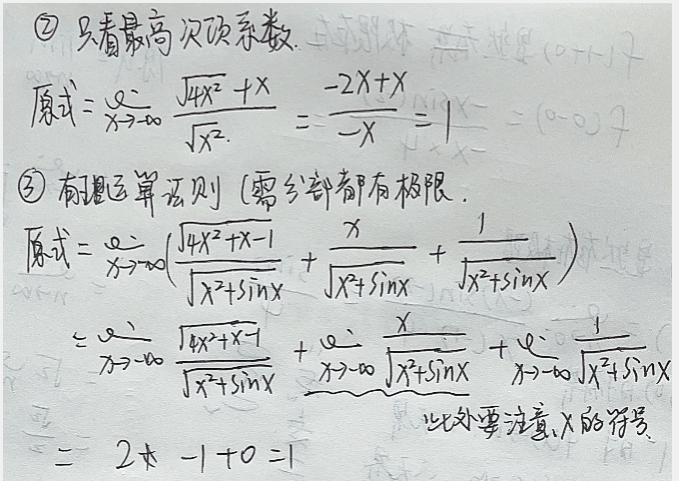 ② 只看最高次项系数.
原式 = lim x→-∞ (√(4x²) + x) / √(x²) = (-2x+x) / -x = 1
③ 有理运算法则 (需各部都有极限.
原式 = lim x→-∞ ( √(4x²+x-1) / √(x²+sinx) + x / √(x²+sinx) + 1 / √(x²+sinx) )
= lim x→-∞ √(4x²+x-1) / √(x²+sinx) + lim x→-∞ x / √(x²+sinx) + lim x→-∞ 1 / √(x²+sinx)
此处要注意x的符号
= 2 -1+0 =1